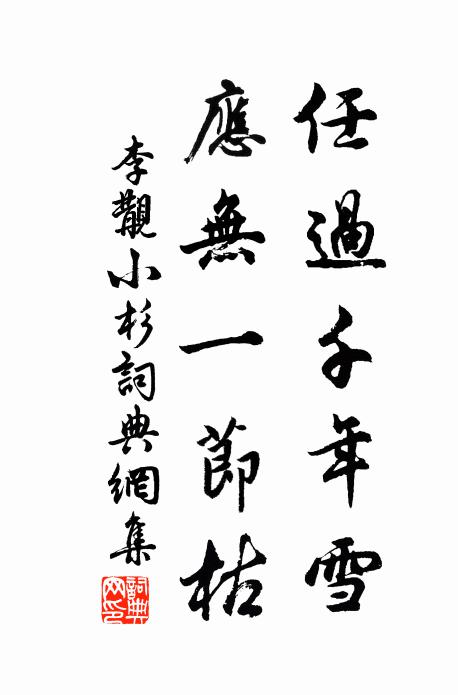 任過千年雪
應無一節枯
李觀小杉詞典網集
詞典網印